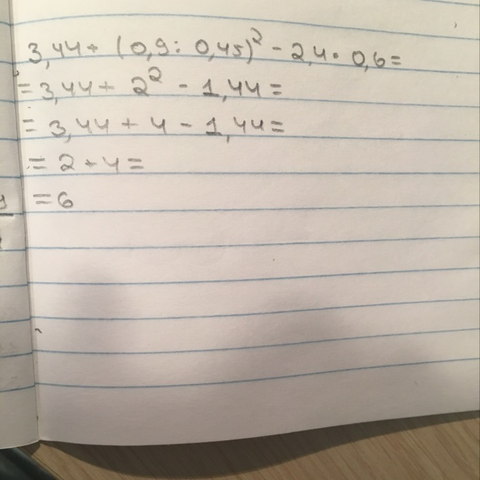 3,44 + (0,9 : 0,45)² - 2,4 · 0,6 =
= 3,44 + 2² - 1,44 =
= 3,44 + 4 - 1,44 =
= 2 + 4 =
= 6